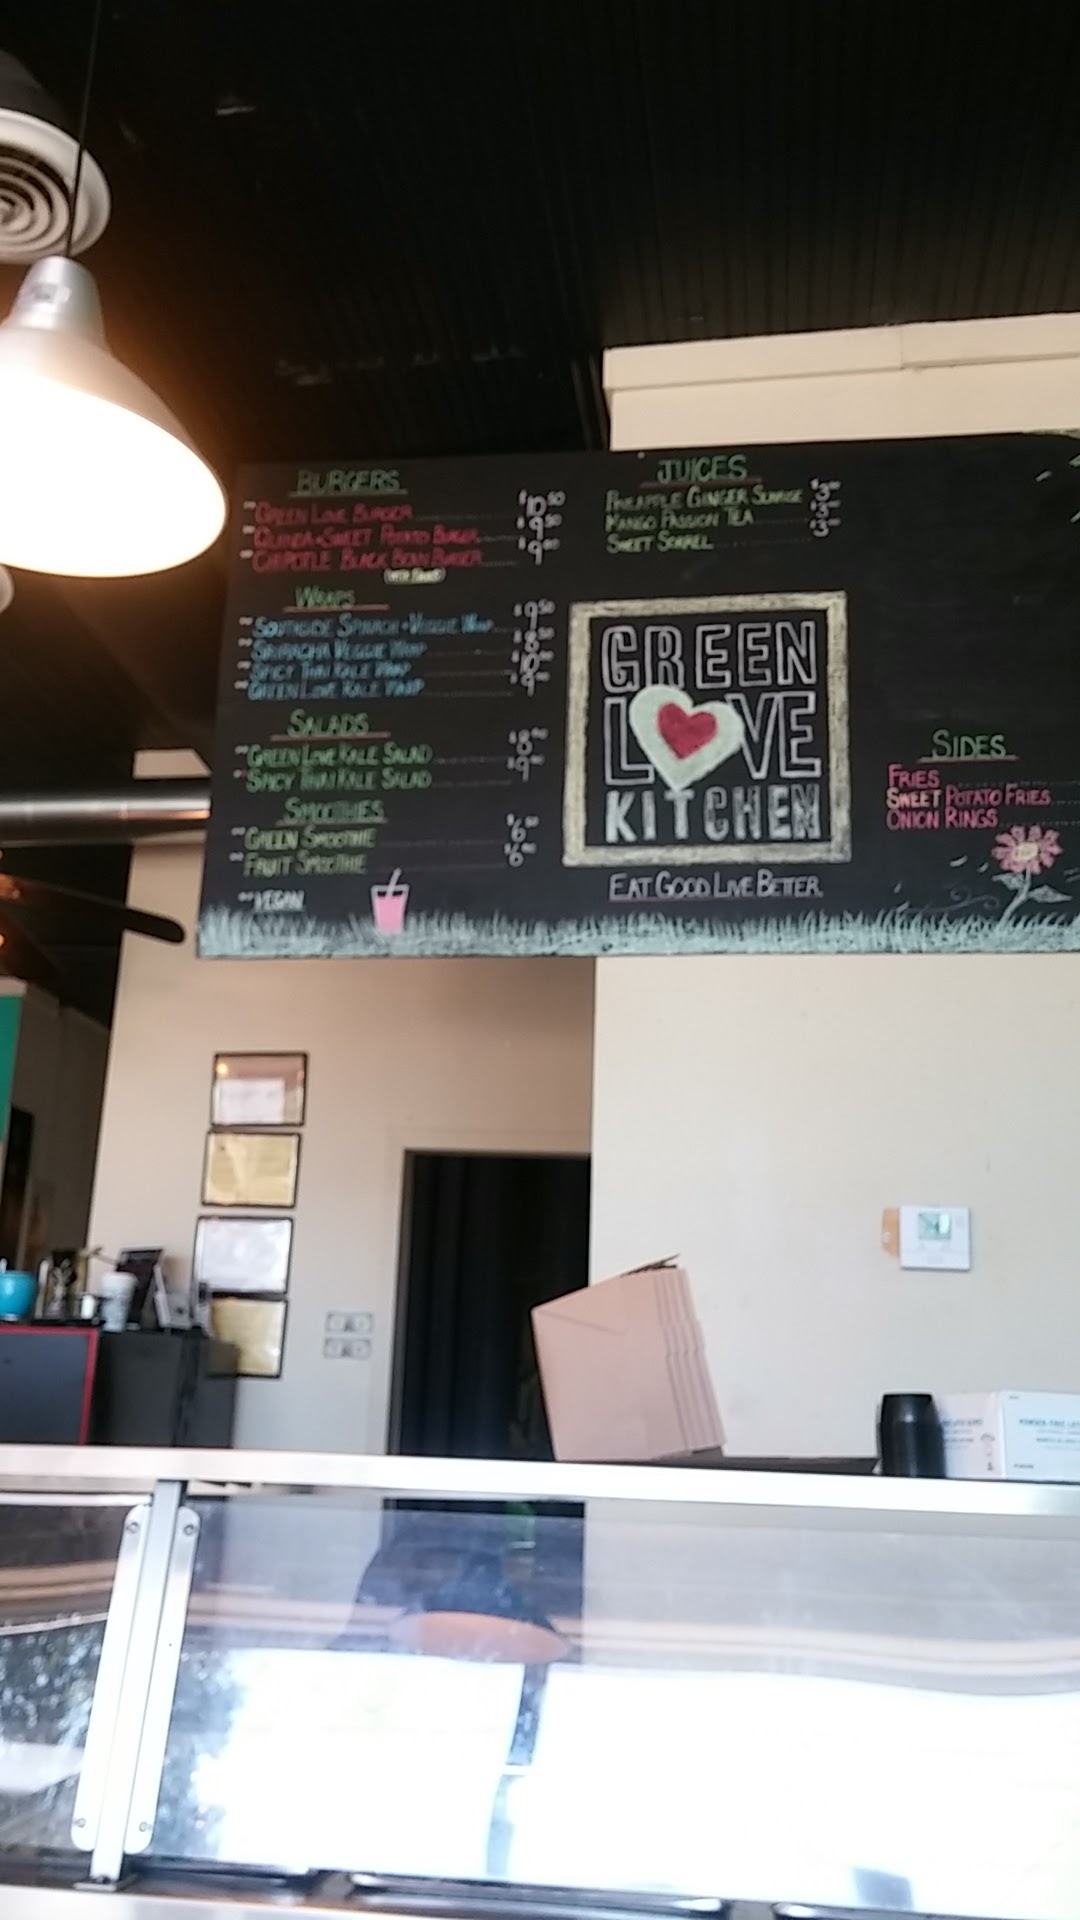 BURGERS
~GREEN LOVE BURGER $10.50
~QUINOA-SWEET POTATO BURGER $9.50
~CHIPOTLE BLACK BEAN BURGER $9.00
WRAPS
~SOUTHSIDE SPINACH-VEGGIE WRAP $9.50
~SRIRACHA VEGGIE WRAP
~SPICY THAI KALE WRAP
~GREEN LOVE KALE WRAP
SALADS
~GREEN LOVE KALE SALAD $8
~SPICY THAI KALE SALAD 9
SMOOTHIES
~GREEN SMOOTHIE $6
~FRUIT SMOOTHIE 6
~VEGAN
JUICES
PINEAPPLE GINGER SUNRISE $3
MANGO PASSION TEA 3
SWEET SORREL 3
GREEN
LOVE
KITCHEN
EAT GOOD LIVE BETTER
SIDES
FRIES
SWEET POTATO FRIES
ONION RINGS